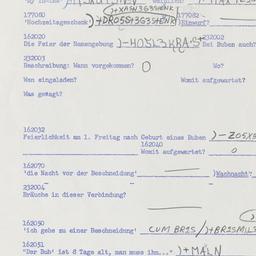 177080 )+XASN3G3SHENK 177082
'Hochzeitsgeschenk' )+DROSS+3G3SHENK
162020 232002
Die Feier der Namengebung )-HOSL3KRAS+ Bei Buben auch?
232003
Beschreibung: Wann vorgekommen? O Wo?
Wen eingeladen? Womit aufgewartet?
Was gesagt?
162032
Feierlichkeit am 1. Freitag nach Geburt eines Buben )-ZOSX
162040
Womit aufgewartet? o
162070
'die Nacht vor der Beschneidung' )Wachnacht?
232004
Bräuche in dieser Verbindung?
162050
'ich gehe zu einer Beschneidung' CUM BRIS/)+BRISMIL
162051
"Der Bub' ist 8 Tage alt, man muss ihn..." )+MALN